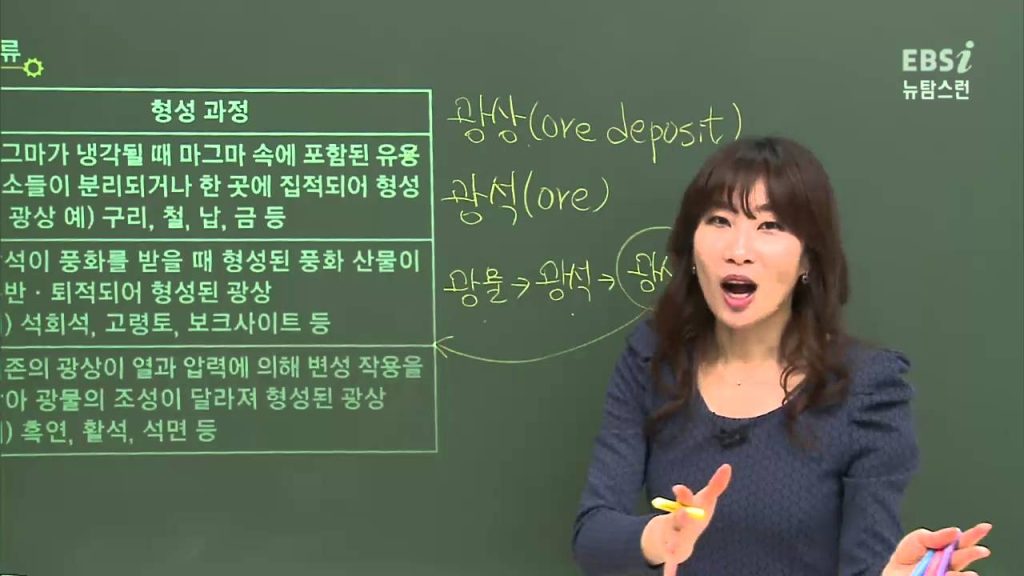 류
EBSi
뉴탐스런
형성 과정
그마가 냉각될 때 마그마 속에 포함된 유용
소들이 분리되거나 한 곳에 집적되어 형성
광상 예) 구리, 철, 납, 금 등
석이 풍화를 받을 때 형성된 풍화 산물이
반·퇴적되어 형성된 광상
) 석회석, 고령토, 보크사이트 등
존의 광상이 열과 압력에 의해 변성 작용을
아 광물의 조성이 달라져 형성된 광상
) 흑연, 활석, 석면 등
광상(ore deposit)
광석(ore)
광물→광석→광